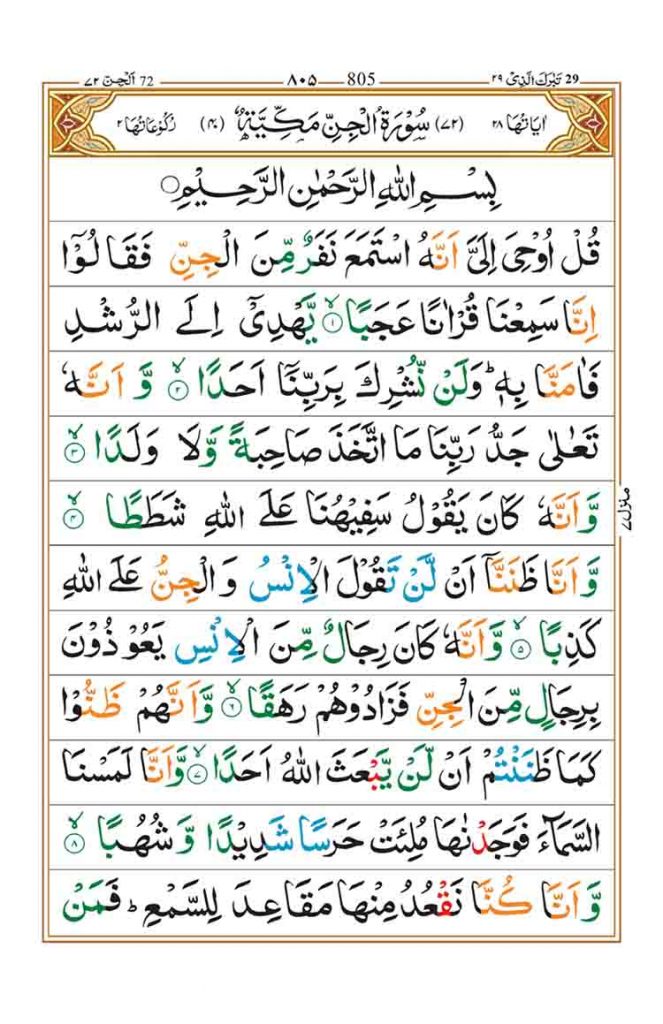 تَبٰرَكَ الَّذِىْ ٢٩ 29
٨٠۵ 805
اَلْجِنّ ٧٢ 72
اٰيَاتُهَا ٢٨
(٧٢) سُوْرَةُ الْجِنِّ مَكِّيَّةٌ (٤٠)
رُكُوْعَاتُهَا ٢
بِسْمِ اللّٰهِ الرَّحْمٰنِ الرَّحِيْمِ
قُلْ اُوْحِىَ اِلَىَّ اَنَّهُ اسْتَمَعَ نَفَرٌ مِّنَ الْجِنِّ فَقَالُوْۤا
اِنَّا سَمِعْنَا قُرْاٰنًا عَجَبًا ۙ‏﴿١﴾ يَّهْدِىْۤ اِلَى الرُّشْدِ
فَاٰمَنَّا بِهٖ ؕ وَلَنْ نُّشْرِكَ بِرَبِّنَاۤ اَحَدًا ۙ‏﴿٢﴾ وَّاَنَّهٗ
تَعٰلٰى جَدُّ رَبِّنَا مَا اتَّخَذَ صَاحِبَةً وَّلَا وَلَدًا ۙ‏﴿٣﴾
وَّاَنَّهٗ كَانَ يَقُوْلُ سَفِيْهُنَا عَلَى اللّٰهِ شَطَطًا ۙ‏﴿٤﴾
وَّاَنَّا ظَنَنَّاۤ اَنْ لَّنْ تَقُوْلَ الْاِنْسُ وَالْجِنُّ عَلَى اللّٰهِ
كَذِبًا ۙ‏﴿۵﴾ وَّاَنَّهٗ كَانَ رِجَالٌ مِّنَ الْاِنْسِ يَعُوْذُوْنَ
بِرِجَالٍ مِّنَ الْجِنِّ فَزَادُوْهُمْ رَهَقًا ۙ‏﴿٦﴾ وَّاَنَّهُمْ ظَنُّوْا
كَمَا ظَنَنْتُمْ اَنْ لَّنْ يَّبْعَثَ اللّٰهُ اَحَدًا ۙ‏﴿٧﴾ وَّاَنَّا لَمَسْنَا
السَّمَآءَ فَوَجَدْنٰهَا مُلِئَتْ حَرَسًا شَدِيْدًا وَّشُهُبًا ۙ‏﴿٨﴾
وَّاَنَّا كُنَّا نَقْعُدُ مِنْهَا مَقَاعِدَ لِلسَّمْعِ ؕ فَمَنْ
منزل ٧